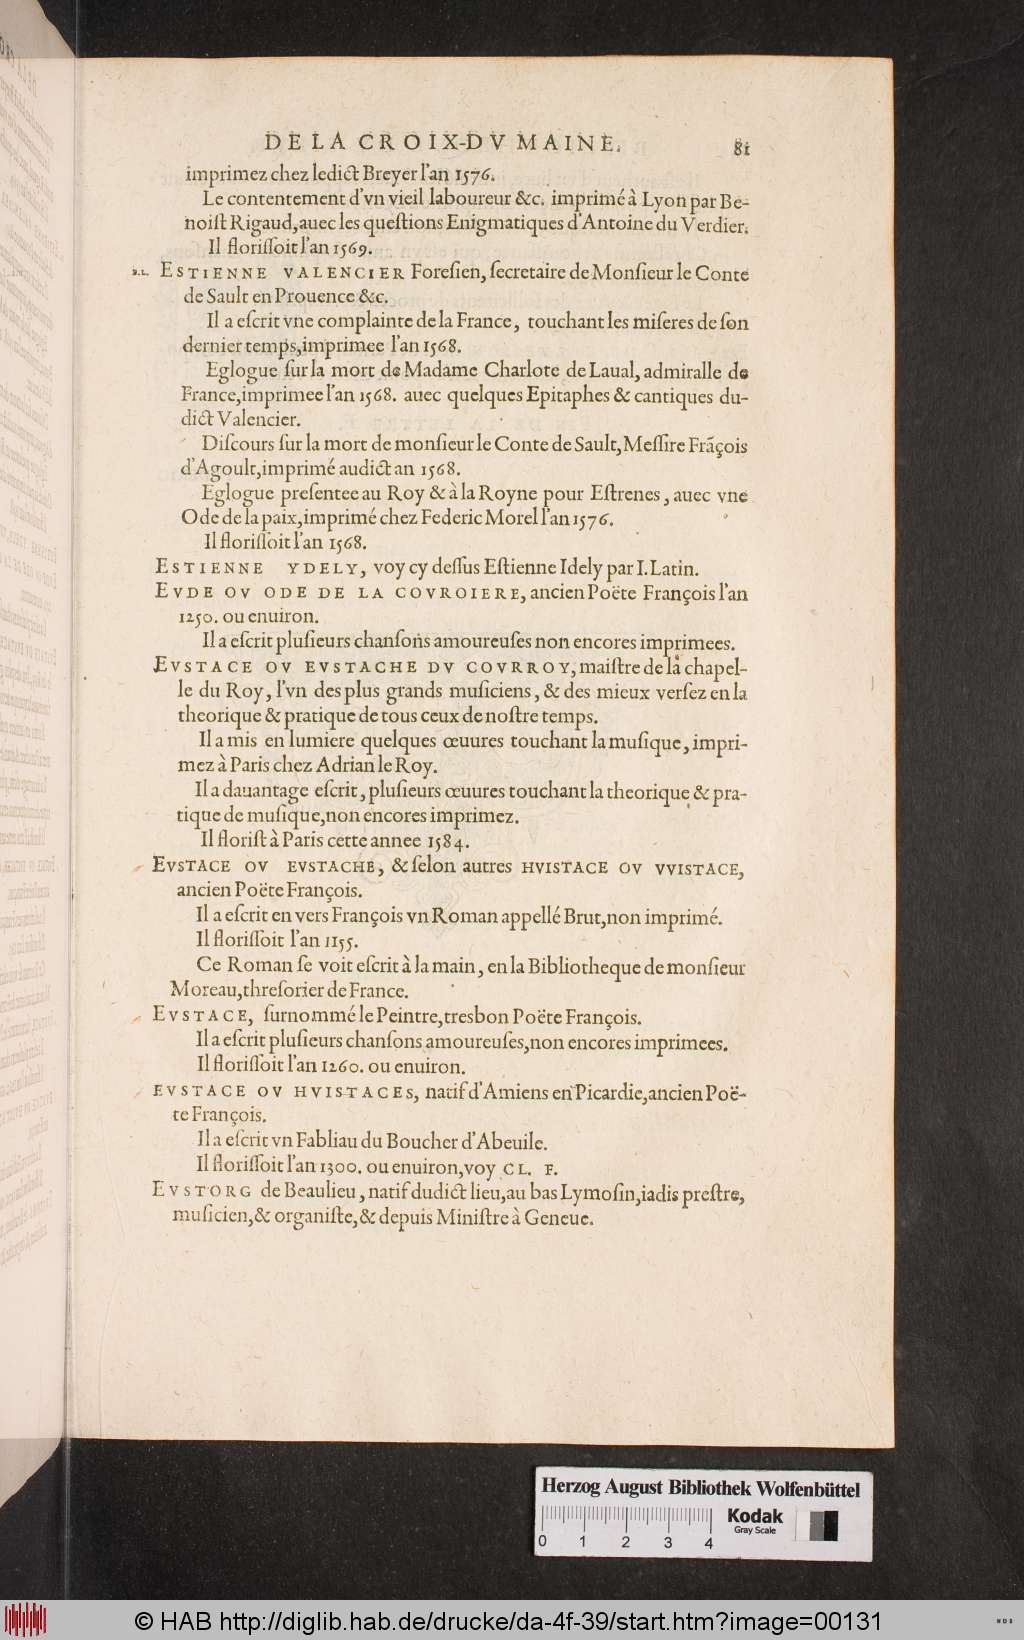 DE LA CROIX-DV MAINE. 81
imprimez chez ledict Breyer l'an 1576.
Le contentement d'vn vieil laboureur &c. imprimé à Lyon par Be-
noist Rigaud, auec les questions Enigmatiques d'Antoine du Verdier.
Il florissoit l'an 1569.
ESTIENNE VALENCIER Foresien, secretaire de Monsieur le Conte
de Sault en Prouence &c.
Il a escrit vne complainte de la France, touchant les miseres de son
dernier temps, imprimee l'an 1568.
Eglogue sur la mort de Madame Charlote de Laual, admiralle de
France, imprimee l'an 1568. auec quelques Epitaphes & cantiques du-
dict Valencier.
Discours sur la mort de monsieur le Conte de Sault, Messire Frãçois
d'Agoult, imprimé audict an 1568.
Eglogue presentee au Roy & à la Royne pour Estrenes, auec vne
Ode de la paix, imprimé chez Federic Morel l'an 1576.
Il florissoit l'an 1568.
ESTIENNE YDELY, voy cy dessus Estienne Idely par I. Latin.
EVDE OV ODE DE LA COVROIERE, ancien Poëte François l'an
1250. ou enuiron.
Il a escrit plusieurs chansons amoureuses non encores imprimees.
EVSTACE OV EVSTACHE DV COVRROY, maistre de la chapel-
le du Roy, l'vn des plus grands musiciens, & des mieux versez en la
theorique & pratique de tous ceux de nostre temps.
Il a mis en lumiere quelques œuures touchant la musique, impri-
mez à Paris chez Adrian le Roy.
Il a dauantage escrit, plusieurs œuures touchant la theorique & pra-
tique de musique, non encores imprimez.
Il florist à Paris cette annee 1584.
EVSTACE OV EVSTACHE, & selon autres HVISTACE OV VVISTACE,
ancien Poëte François.
Il a escrit en vers François vn Roman appellé Brut, non imprimé.
Il florissoit l'an 1155.
Ce Roman se voit escrit à la main, en la Bibliotheque de monsieur
Moreau, thresorier de France.
EVSTACE, surnommé le Peintre, tresbon Poëte François.
Il a escrit plusieurs chansons amoureuses, non encores imprimees.
Il florissoit l'an 1260. ou enuiron.
EVSTACE OV HVISTACES, natif d'Amiens en Picardie, ancien Poë-
te François.
Il a escrit vn Fabliau du Boucher d'Abeuile.
Il florissoit l'an 1300. ou enuiron, voy CL. F.
EVSTORG de Beaulieu, natif dudict lieu, au bas Lymosin, iadis prestre,
musicien, & organiste, & depuis Ministre à Geneue.
Herzog August Bibliothek Wolfenbüttel
Kodak
Gray Scale
0 1 2 3 4
© HAB http://diglib.hab.de/drucke/da-4f-39/start.htm?image=00131